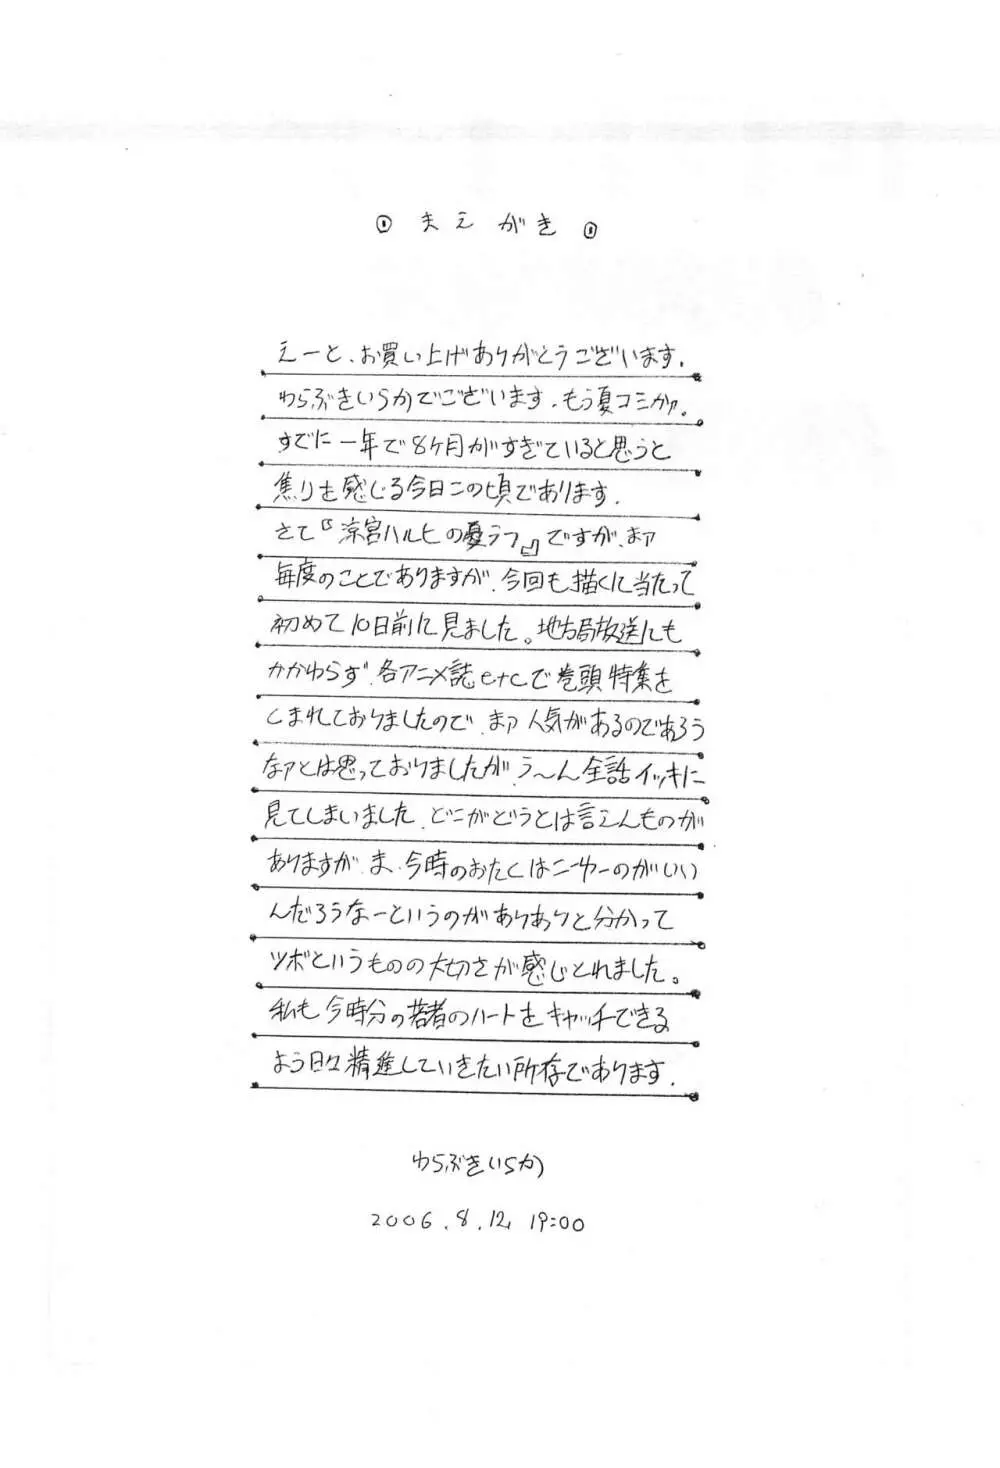 まえがき
えーと、お買い上げありがとうございます。
わらぶきいらかでございます。もう夏コミかァ。
すでに一年で8ヶ月がすぎていると思うと
焦りを感じる今日この頃であります。
さて『涼宮ハルヒの憂ラフ』ですが、まァ
毎度のことでありますが、今回も描くに当たって
初めて10日前に見ました。地方局放送にも
かかわらず、各アニメ誌etcで巻頭特集を
くまれておりましたので、まァ人気があるのであろう
なァとは思っておりましたが、う〜ん全話イッキに
見てしまいました。どこがどうとは言えんものが
ありますが、ま、今時のおたくはこーゆーのがいい
んだろうなーというのがありありと分かって
ツボというものの大切さが感じとれました。
私も今時分の若者のハートをキャッチできる
よう日々精進していきたい所存であります。
わらぶきいらか
2006.8.12, 19:00